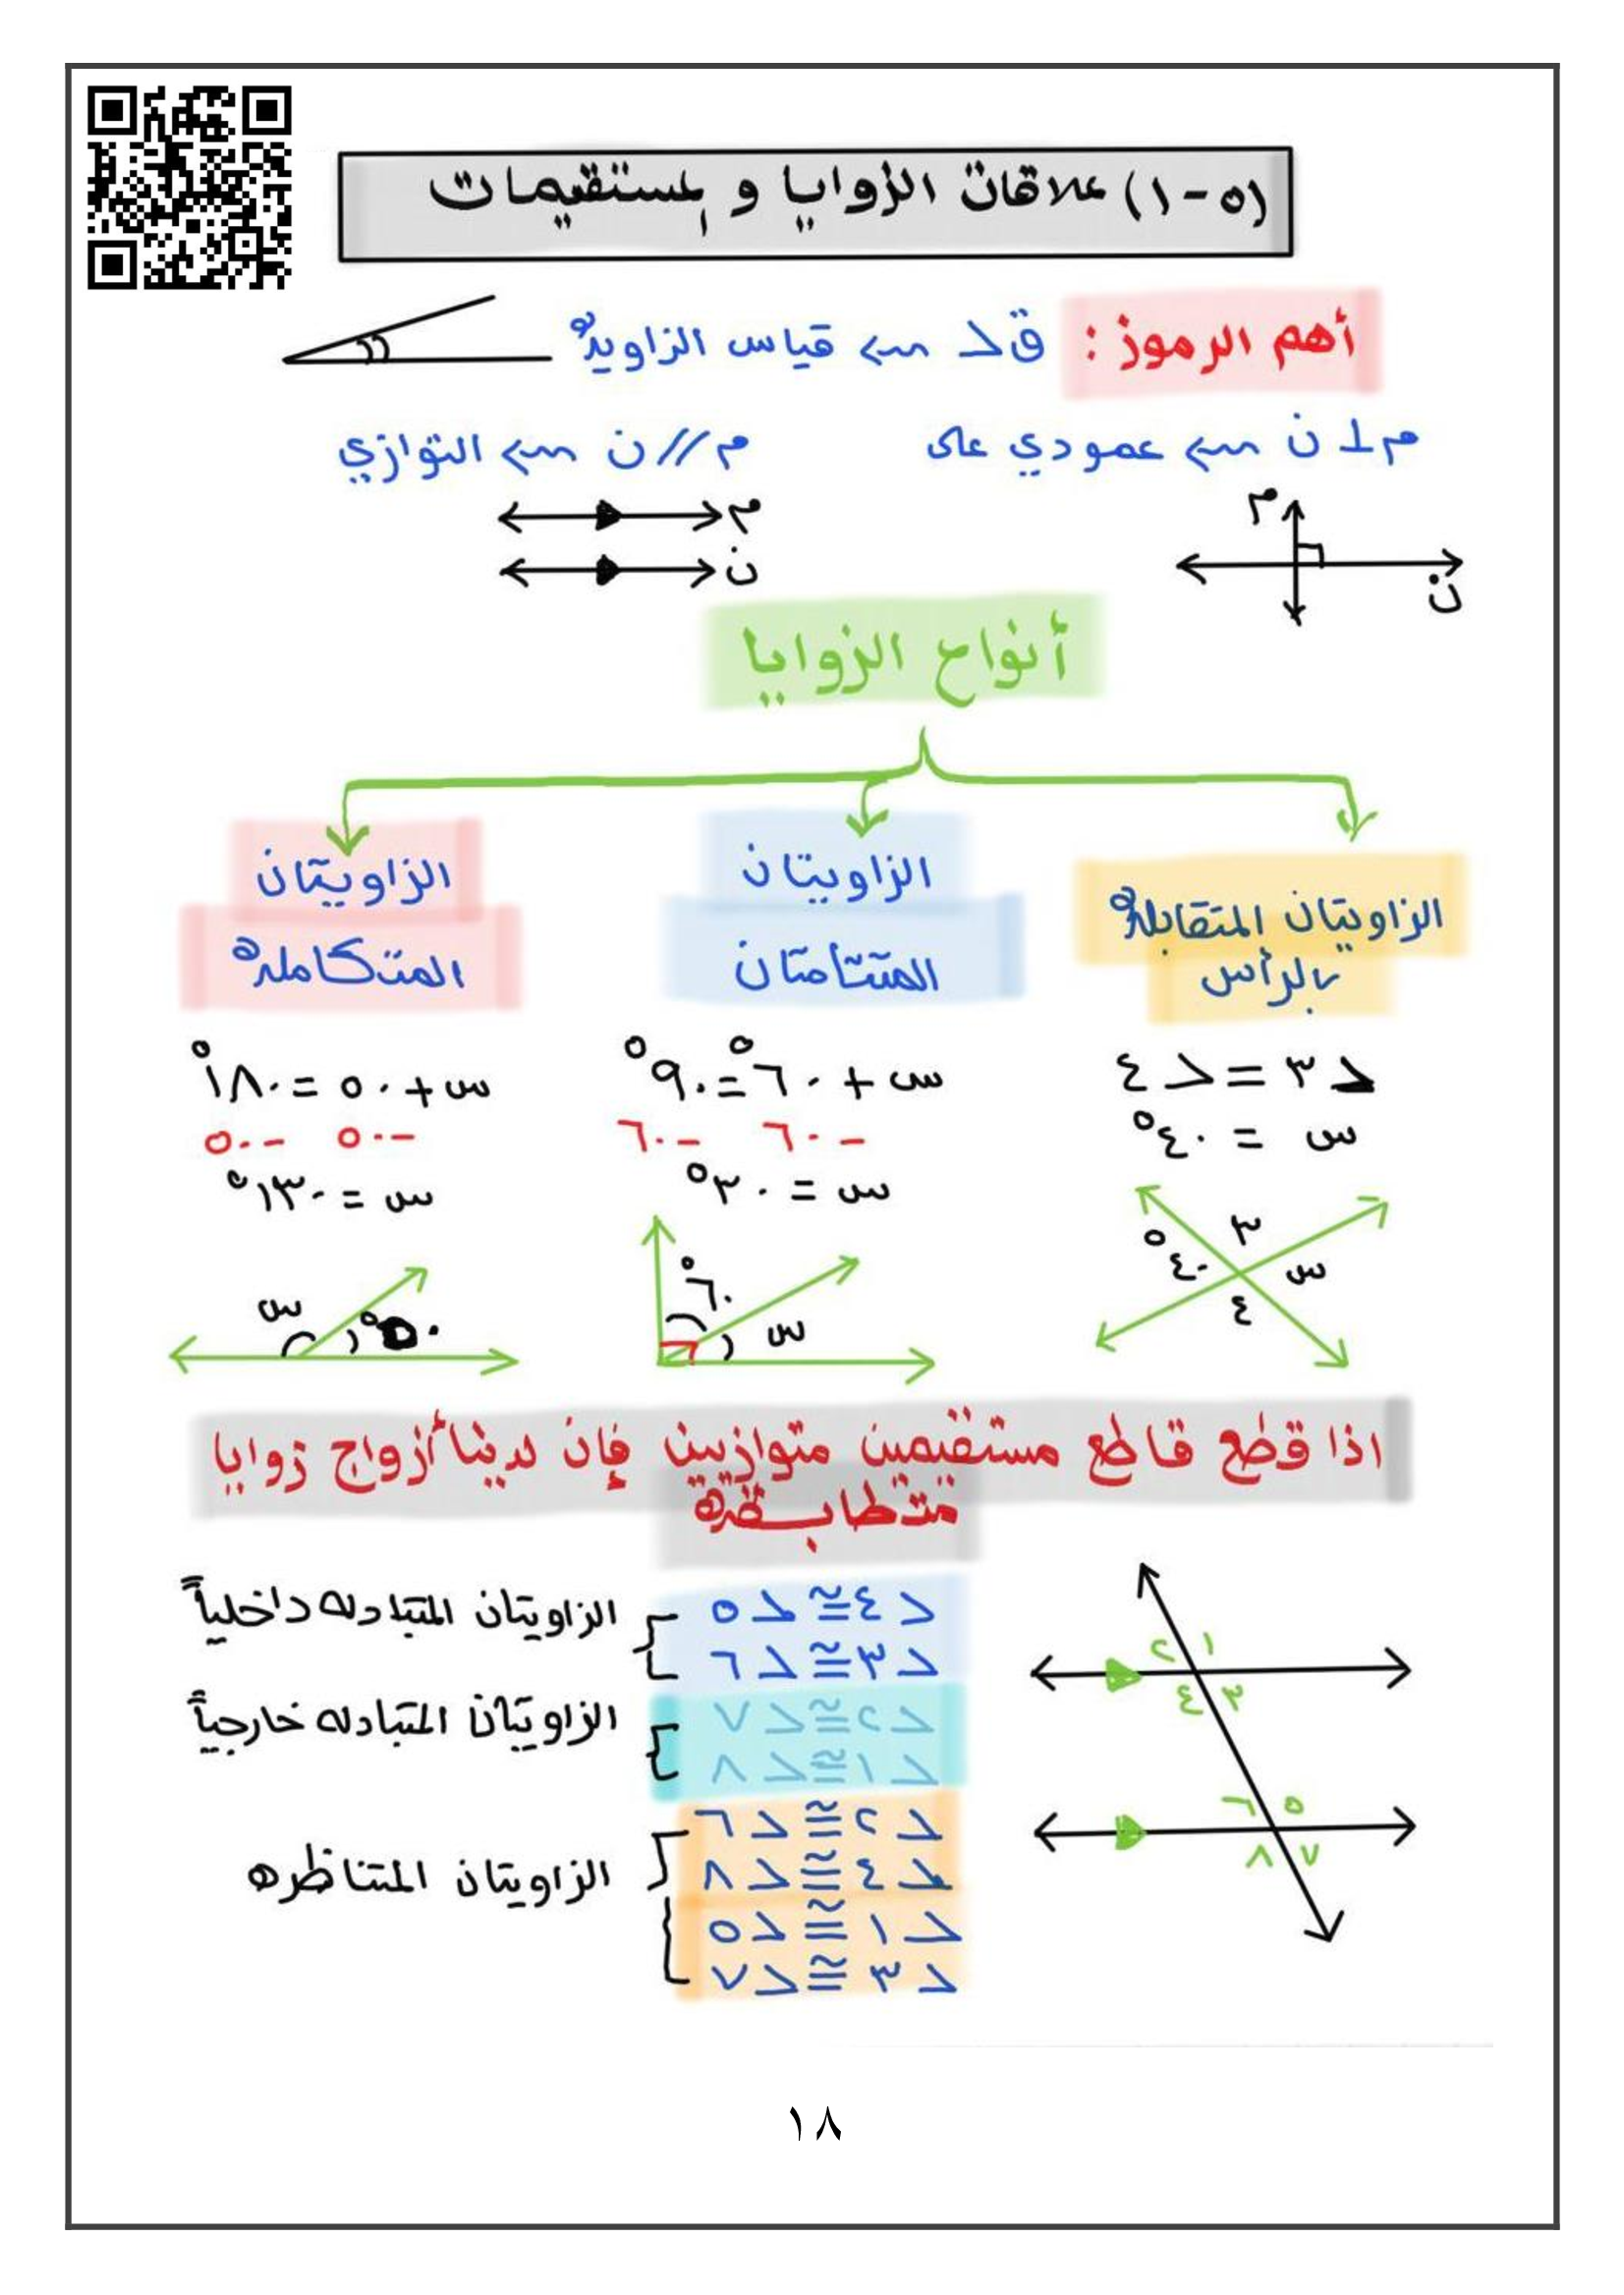 (٥-١) علاقات الزوايا و المستقيمات
أهم الرموز : ق> ⟵ قياس الزاوية
م ⊥ ن ⟵ عمودي على
م // ن ⟵ التوازي
م
ن
م
ن
أنواع الزوايا
الزاويتان المتقابلة
بالرأس
> ٣ = > ٤
س = ٤٠°
٣
٤٠°
س
٤
الزاويتان
المتتامتان
س + ٦٠° = ٩٠°
- ٦٠ - ٦٠
س = ٣٠°
٦٠°
س
الزاويتان
المتكاملة
س + ٥٠ = ١٨٠°
- ٥٠ - ٥٠
س = ١٣٠°
س
٥٠°
اذا قطع قاطع مستقيمين متوازيين فإن لدينا أزواج زوايا
متطابقة
١ ٢
٣ ٤
٥ ٦
٧ ٨
> ٤ ≅ > ٥
> ٣ ≅ > ٦
الزاويتان المتبادله داخلياً
> ٢ ≅ > ٧
> ١ ≅ > ٨
الزاويتان المتبادله خارجياً
> ٢ ≅ > ٦
> ٤ ≅ > ٨
> ١ ≅ > ٥
> ٣ ≅ > ٧
الزاويتان المتناظره
١٨